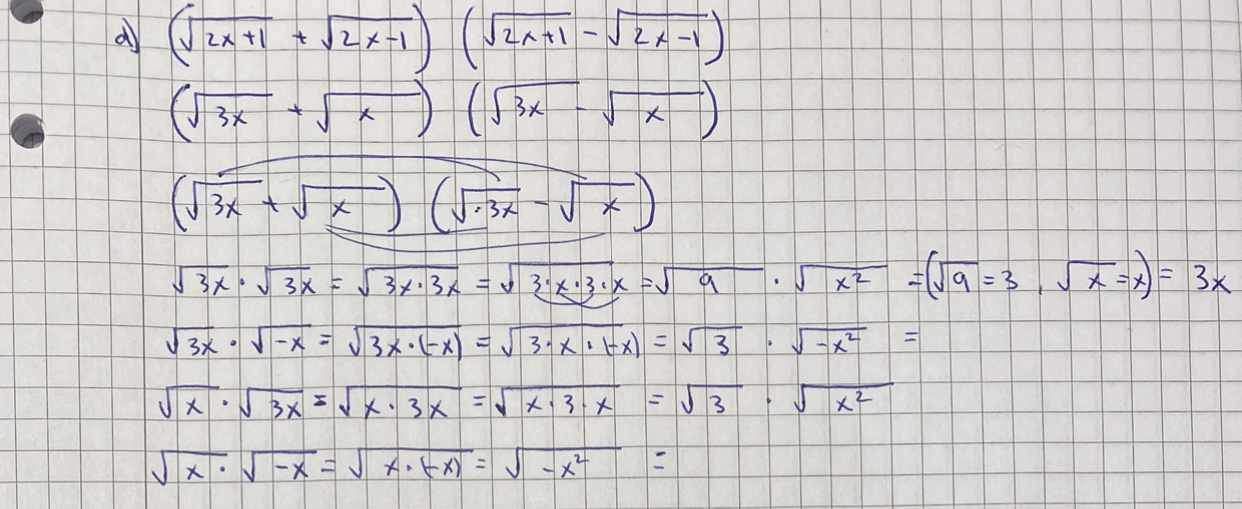 d) (√2x+1 + √2x-1) (√2x+1 - √2x-1)
(√3x + √x) (√3x - √x)
(√3x + √x) (√·3x - √x)
√3x · √3x = √3x·3x = √3·x·3·x = √9 · √x² = (√9 = 3, √x = x) = 3x
√3x · √-x = √3x·(-x) = √3·x·(-x) = √3 · √-x² =
√x · √3x = √x·3x = √x·3·x = √3 · √x²
√x · √-x = √x·(-x) = √-x² =